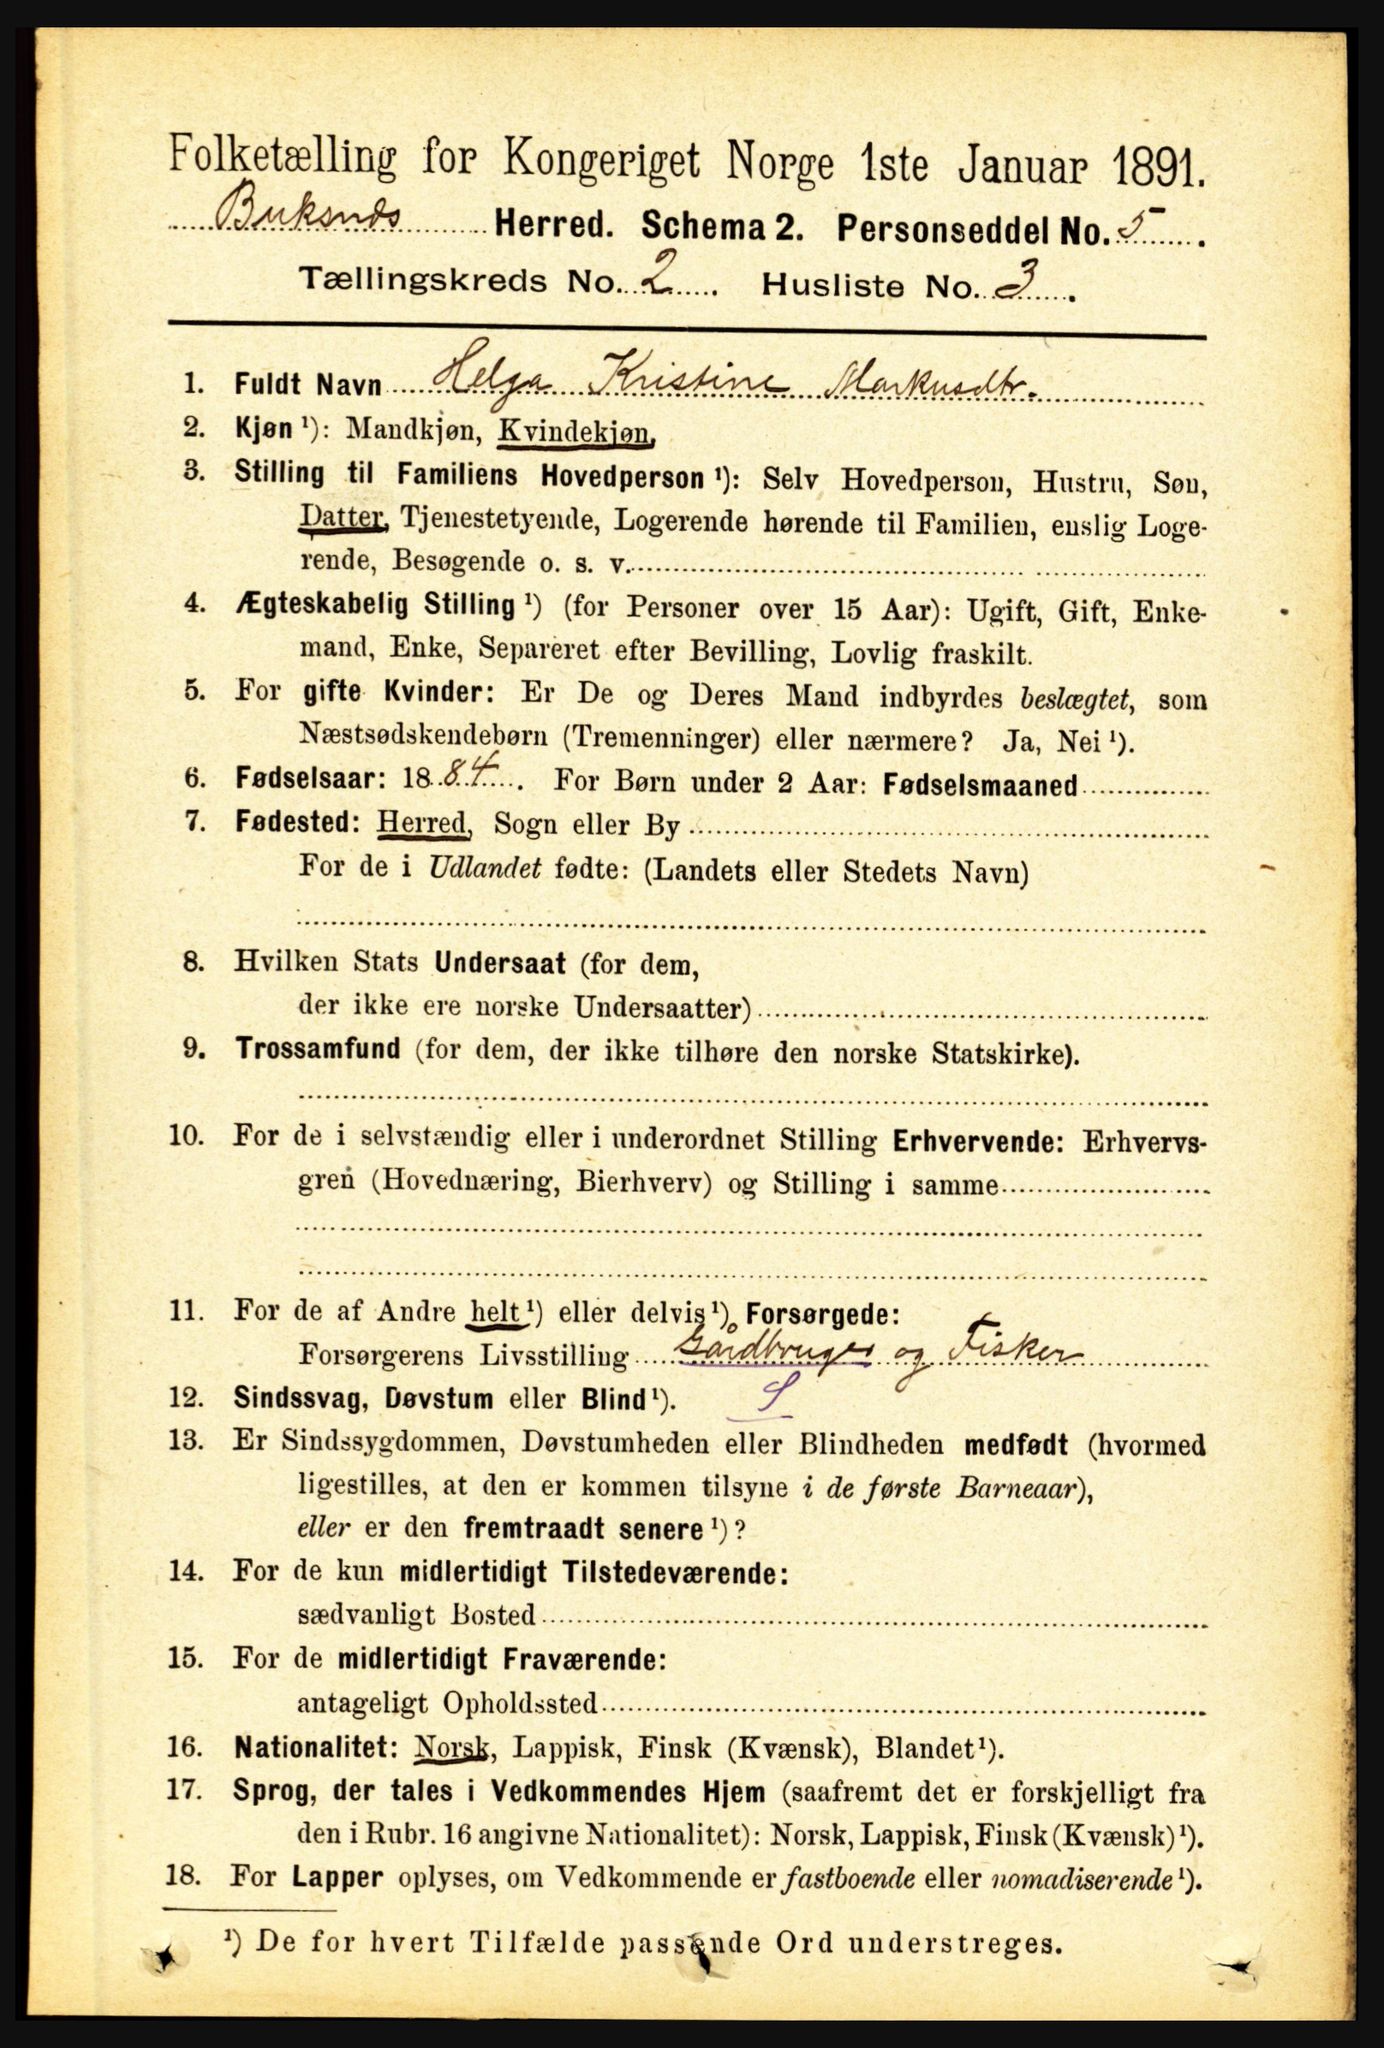 Folketælling for Kongeriget Norge 1ste Januar 1891.
Buksnes Herred. Schema 2. Personseddel No. 5.
Tællingskreds No. 2. Husliste No. 3.
1. Fuldt Navn Helga Kristine Markusdtr.
2. Kjøn ¹): Mandkjøn, Kvindekjøn,
3. Stilling til Familiens Hovedperson ¹): Selv Hovedperson, Hustru, Søn,
Datter, Tjenestetyende, Logerende hørende til Familien, enslig Loge-
rende, Besøgende o. s. v.
4. Ægteskabelig Stilling ¹) (for Personer over 15 Aar): Ugift, Gift, Enke-
mand, Enke, Separeret efter Bevilling, Lovlig fraskilt.
5. For gifte Kvinder: Er De og Deres Mand indbyrdes beslægtet, som
Næstsødskendebørn (Tremenninger) eller nærmere? Ja, Nei ¹).
6. Fødselsaar: 1884. For Børn under 2 Aar: Fødselsmaaned
7. Fødested: Herred, Sogn eller By
For de i Udlandet fødte: (Landets eller Stedets Navn)
8. Hvilken Stats Undersaat (for dem,
der ikke ere norske Undersaatter)
9. Trossamfund (for dem, der ikke tilhøre den norske Statskirke).
10. For de i selvstændig eller i underordnet Stilling Erhvervende: Erhvervs-
gren (Hovednæring, Bierhverv) og Stilling i samme
11. For de af Andre helt ¹) eller delvis ¹), Forsørgede:
Forsørgerens Livsstilling Gårdbruger og Fisker
12. Sindssvag, Døvstum eller Blind ¹). S
13. Er Sindssygdommen, Døvstumheden eller Blindheden medfødt (hvormed
ligestilles, at den er kommen tilsyne i de første Barneaar),
eller er den fremtraadt senere ¹)?
14. For de kun midlertidigt Tilstedeværende:
sædvanligt Bosted
15. For de midlertidigt Fraværende:
antageligt Opholdssted
16. Nationalitet: Norsk, Lappisk, Finsk (Kvænsk), Blandet ¹).
17. Sprog, der tales i Vedkommendes Hjem (saafremt det er forskjelligt fra
den i Rubr. 16 angivne Nationalitet): Norsk, Lappisk, Finsk (Kvænsk) ¹).
18. For Lapper oplyses, om Vedkommende er fastboende eller nomadiserende ¹).
¹) De for hvert Tilfælde passende Ord understreges.